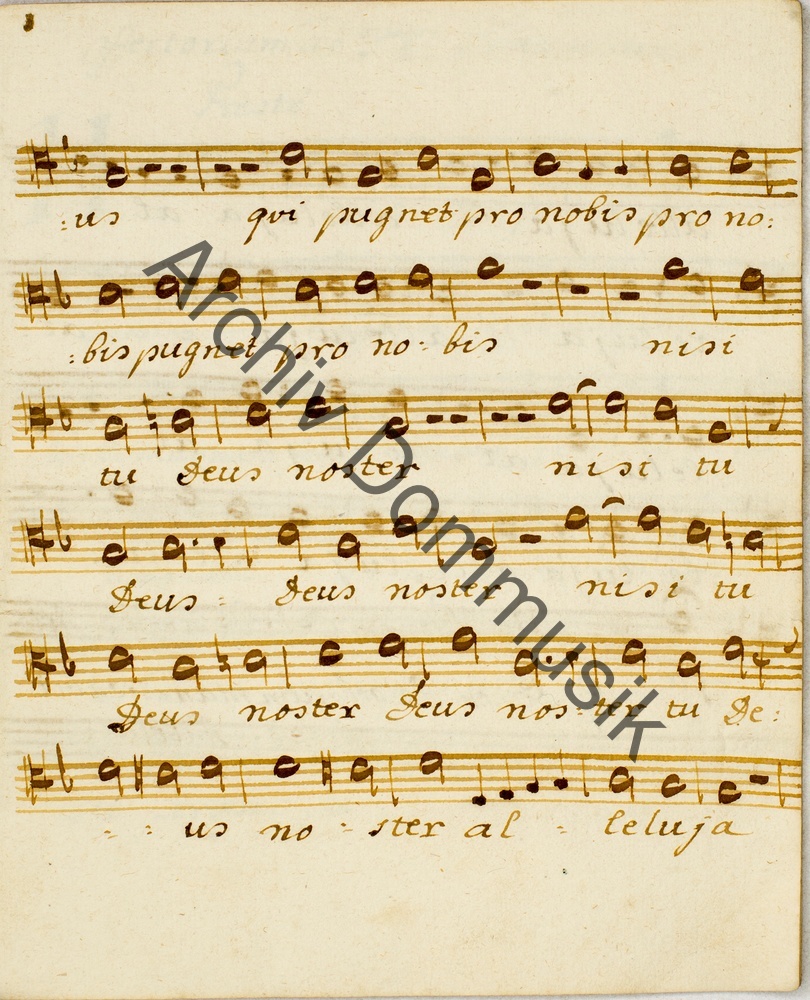 :us qui pugnet pro nobis pro no:
:bis pugnet pro no: bis nisi
tu Deus noster nisi tu
Deus : Deus noster nisi tu
Deus noster Deus nos: ter tu De:
: : us no : ster al : leluja
Archiv Dommusik